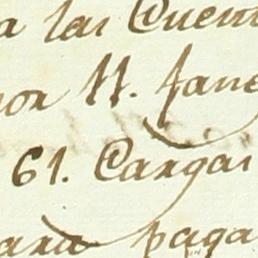 a las Cuent
por 11. fane
61. Cargas
para paga